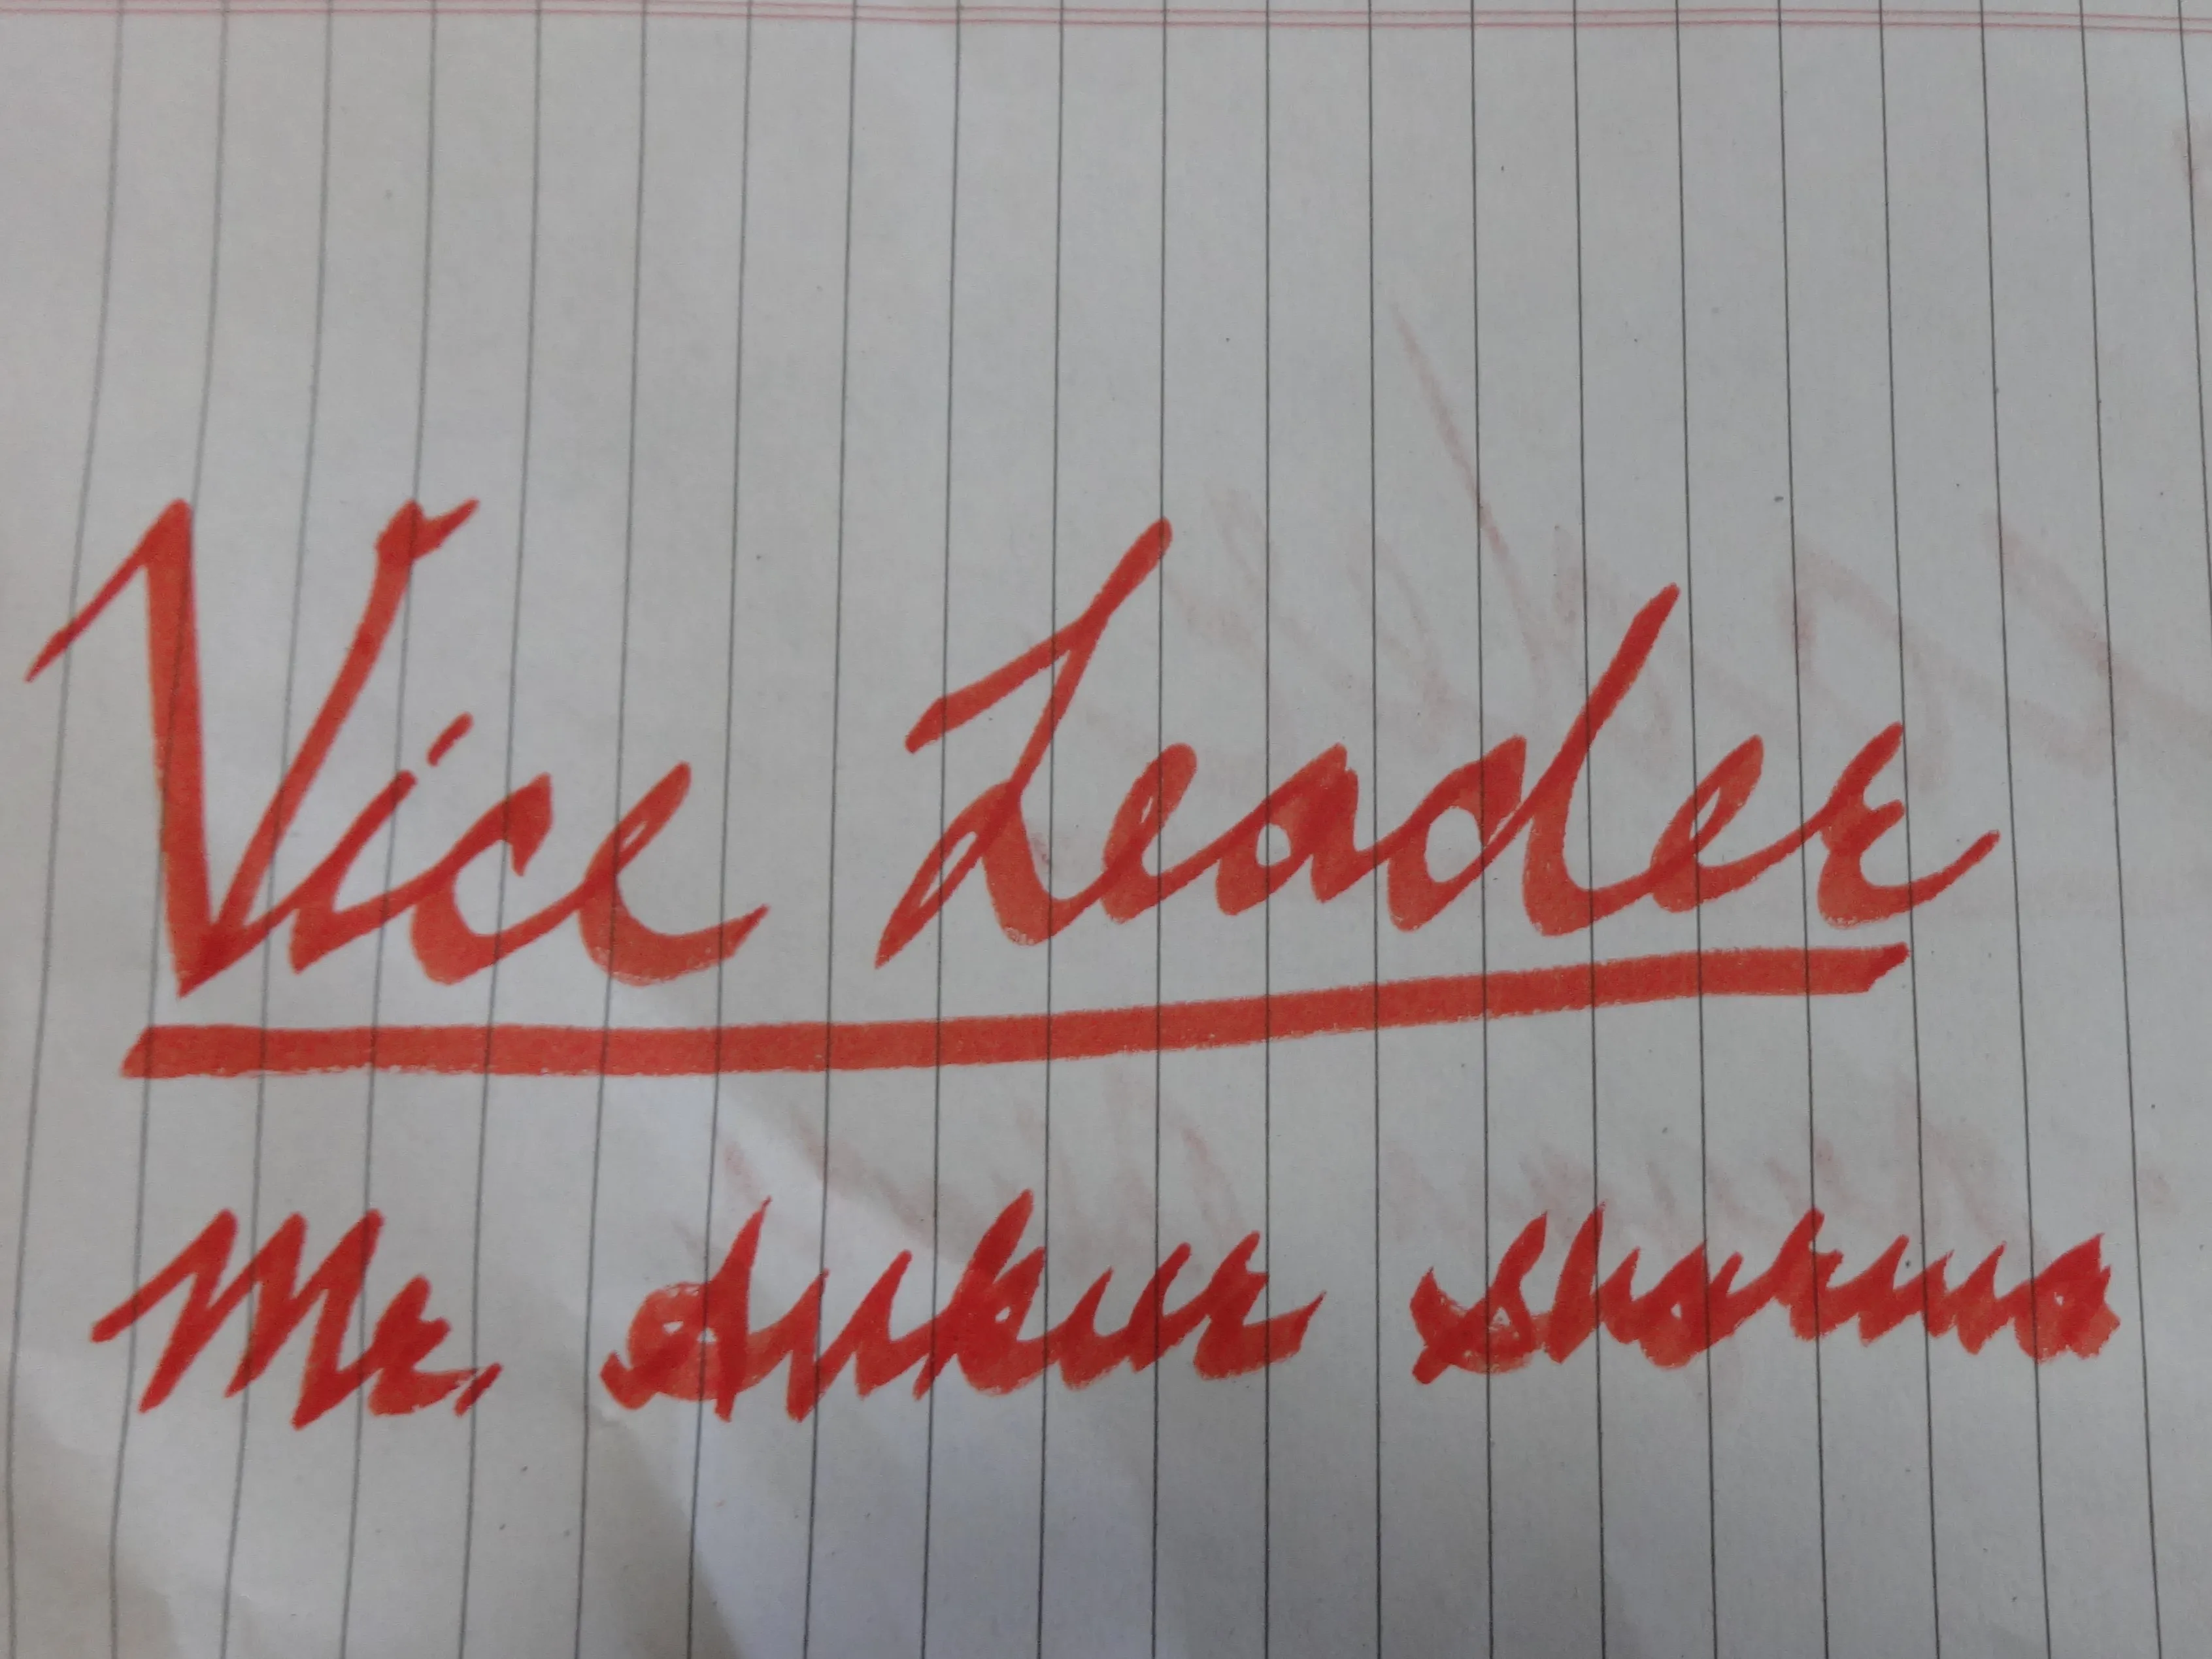 Vice Leader
Mr. Ankur Sharma